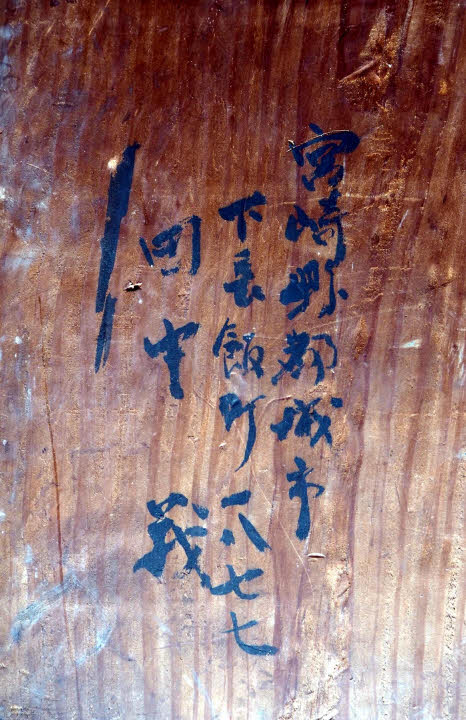 宮崎縣都城市
下長飯町一八七七
田中 義